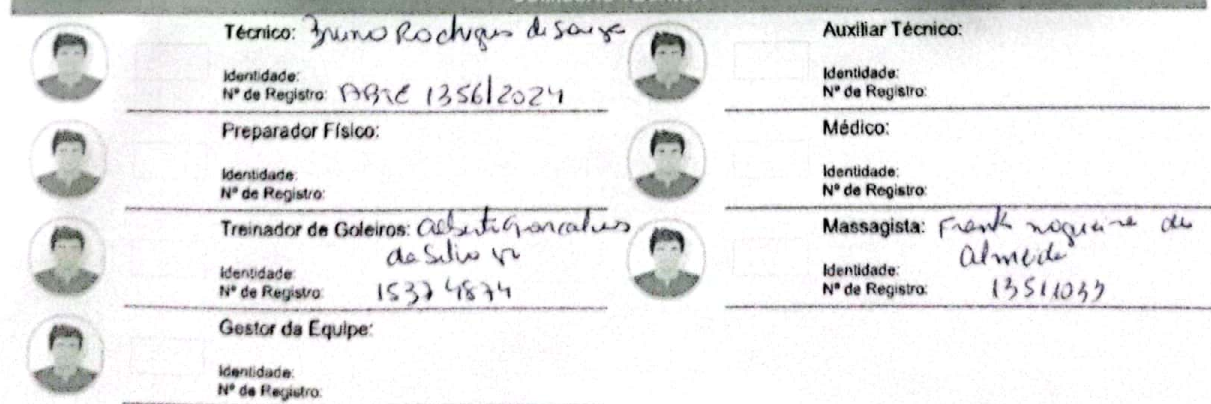 Técnico: Bruno Rodrigues de Souza
Identidade:
Nº de Registro: ABRE 1356/2024
Preparador Físico:
Identidade:
Nº de Registro:
Treinador de Goleiros: Gonçalves
da Silva Jr
Identidade:
Nº de Registro: 15374874
Gestor da Equipe:
Identidade:
Nº de Registro:
Auxiliar Técnico:
Identidade:
Nº de Registro:
Médico:
Identidade:
Nº de Registro:
Massagista: Frank nogueira de
almeida
Identidade:
Nº de Registro: 13511033